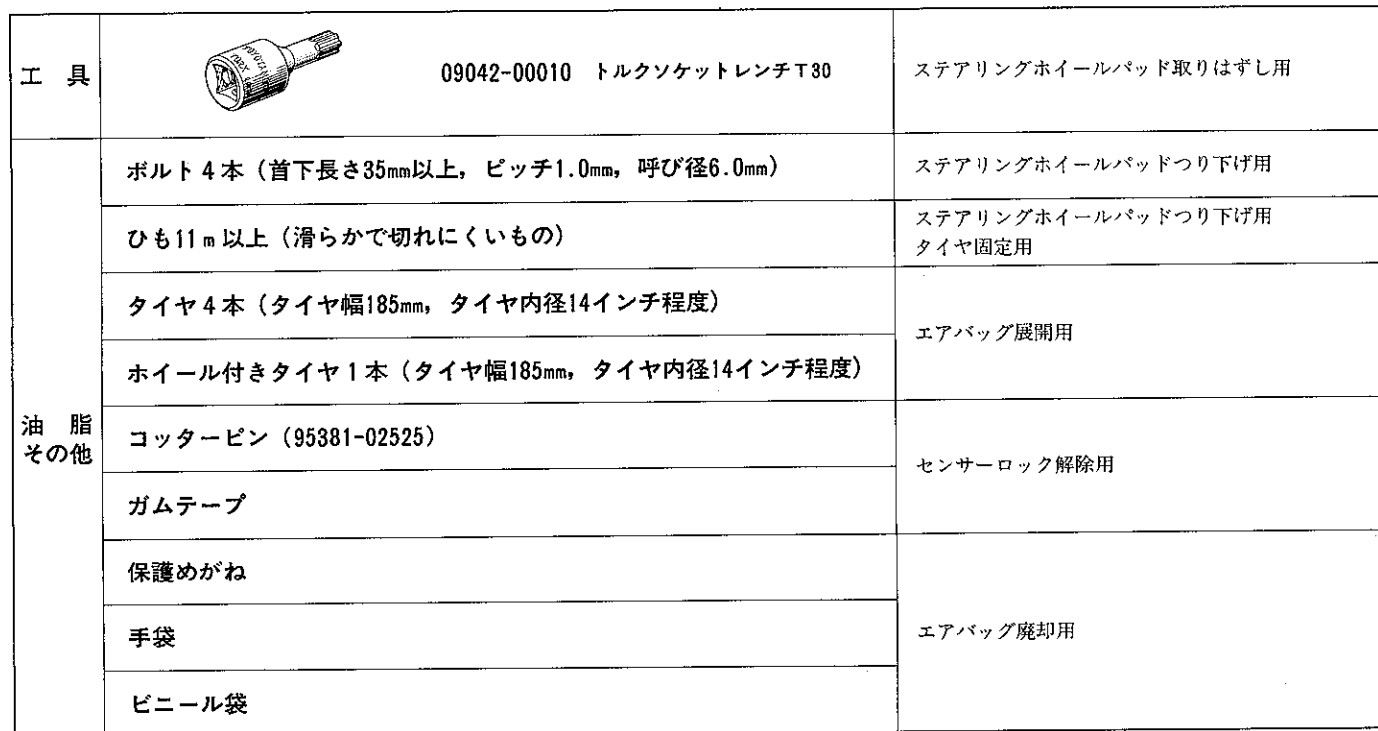 工 具
TOYOTA
09042-00010 トルクソケットレンチT30
ステアリングホイールパッド取りはずし用
油 脂
その他
ボルト4本（首下長さ35mm以上，ピッチ1.0mm，呼び径6.0mm）
ステアリングホイールパッドつり下げ用
ひも11m以上（滑らかで切れにくいもの）
ステアリングホイールパッドつり下げ用
タイヤ固定用
タイヤ4本（タイヤ幅185mm，タイヤ内径14インチ程度）
エアバッグ展開用
ホイール付きタイヤ1本（タイヤ幅185mm，タイヤ内径14インチ程度）
コッターピン（95381-02525）
センサーロック解除用
ガムテープ
保護めがね
手袋
エアバッグ廃却用
ビニール袋